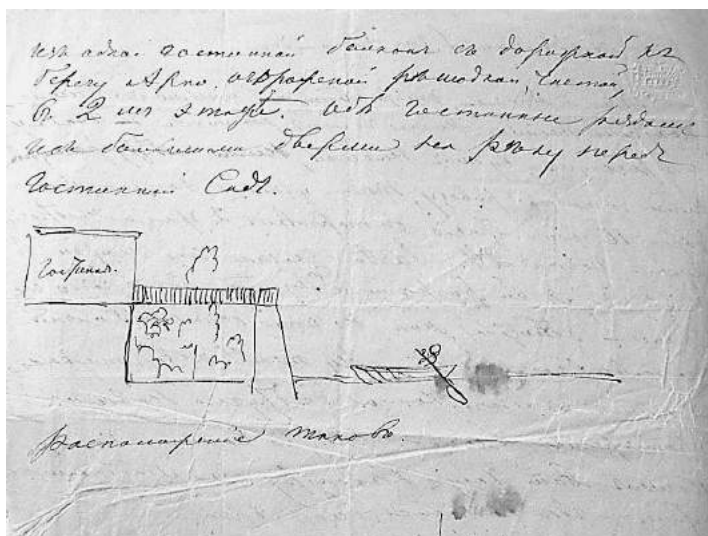 изъ одной гостинной балконъ съ дорожкой къ
берегу Арно огорожено рѣшоткой, частой,
въ 2мъ этажѣ. Обѣ гостинные
большими дверями на рѣку передъ
Гостинной Садъ.
Гостиная.
Расположеніе таково.